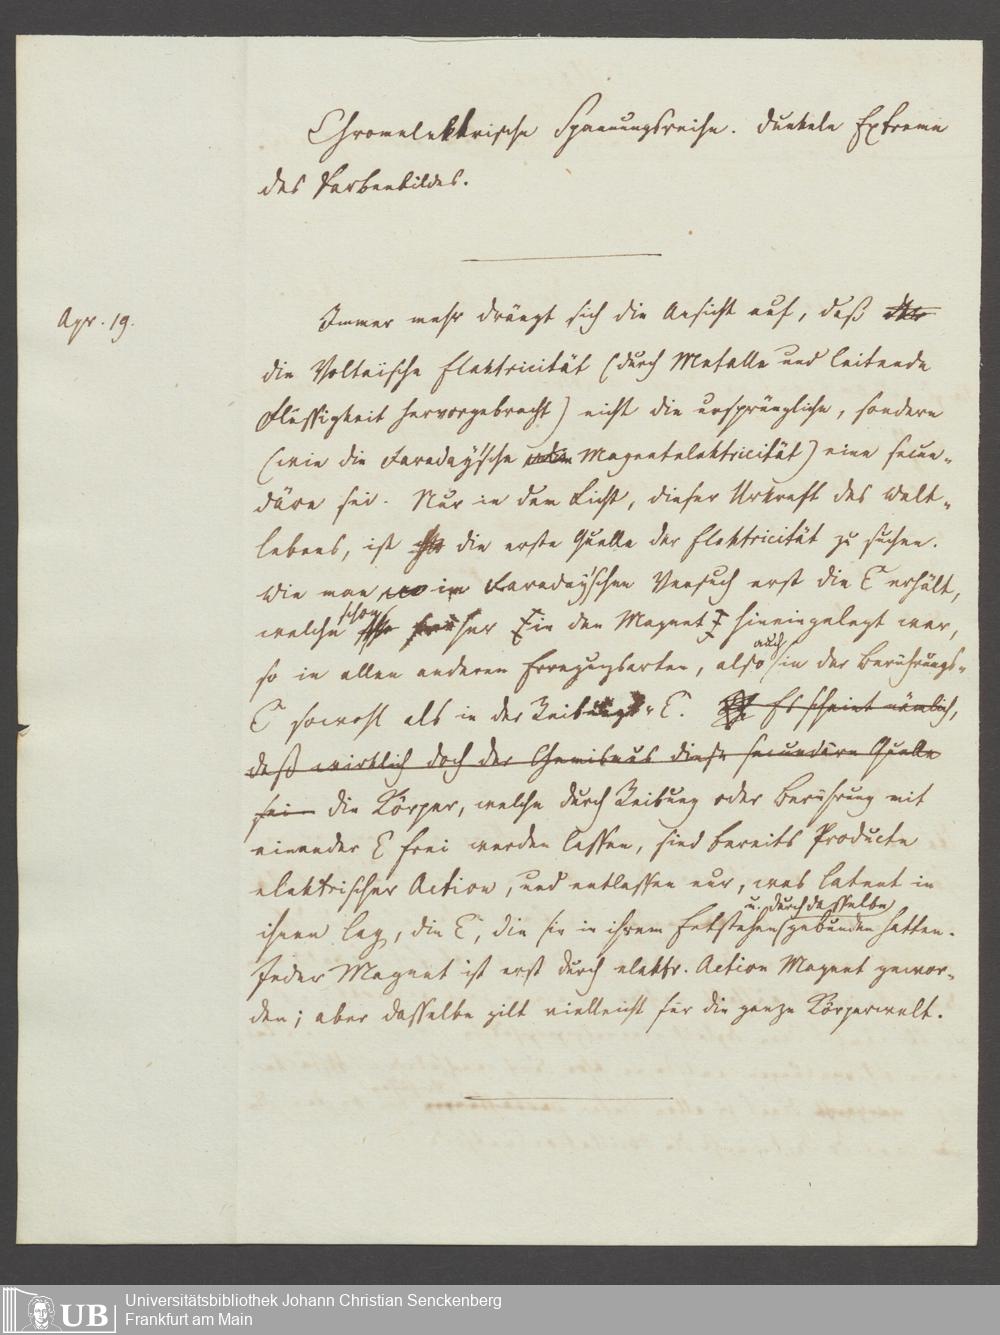 Chromelektrische Spannungsreihe. Dunkele Extreme
des Farbenbildes.
Apr. 19.
Immer mehr drängt sich die Ansicht auf, daß
die Voltaische Elektricität (durch Metalle und leitende
Flüssigkeit hervorgebracht) nicht die ursprüngliche, sondern
(wie die Faraday'sche Magnetelektricität) eine secun-
däre sei. Nur in dem Licht, dieser Urkraft des Welt-
lebens, ist die erste Quelle der Elektricität zu suchen.
Wie man im Faraday'schen Versuch erst die E erhält,
welche schon früher in den Magnet hineingelegt war,
so in allen anderen Erregungsarten, also auch in der Berührungs-
E sowohl als in der Reibungs-E. Es scheint nämlich,
daß wirklich doch der Chemismus diese secundäre Quelle
sei die Körper, welche durch Reibung oder Berührung mit
einander E frei werden lassen, sind bereits Producte
elektrischer Action, und entlassen nur, was latent in
ihnen lag, die E, die sie in ihrem Entstehen u. durch dasselbe gebunden hatten.
Jeder Magnet ist erst durch elektr. Action Magnet gewor-
den; aber dasselbe gilt vielleicht für die ganze Körperwelt.
UB
Universitätsbibliothek Johann Christian Senckenberg
Frankfurt am Main